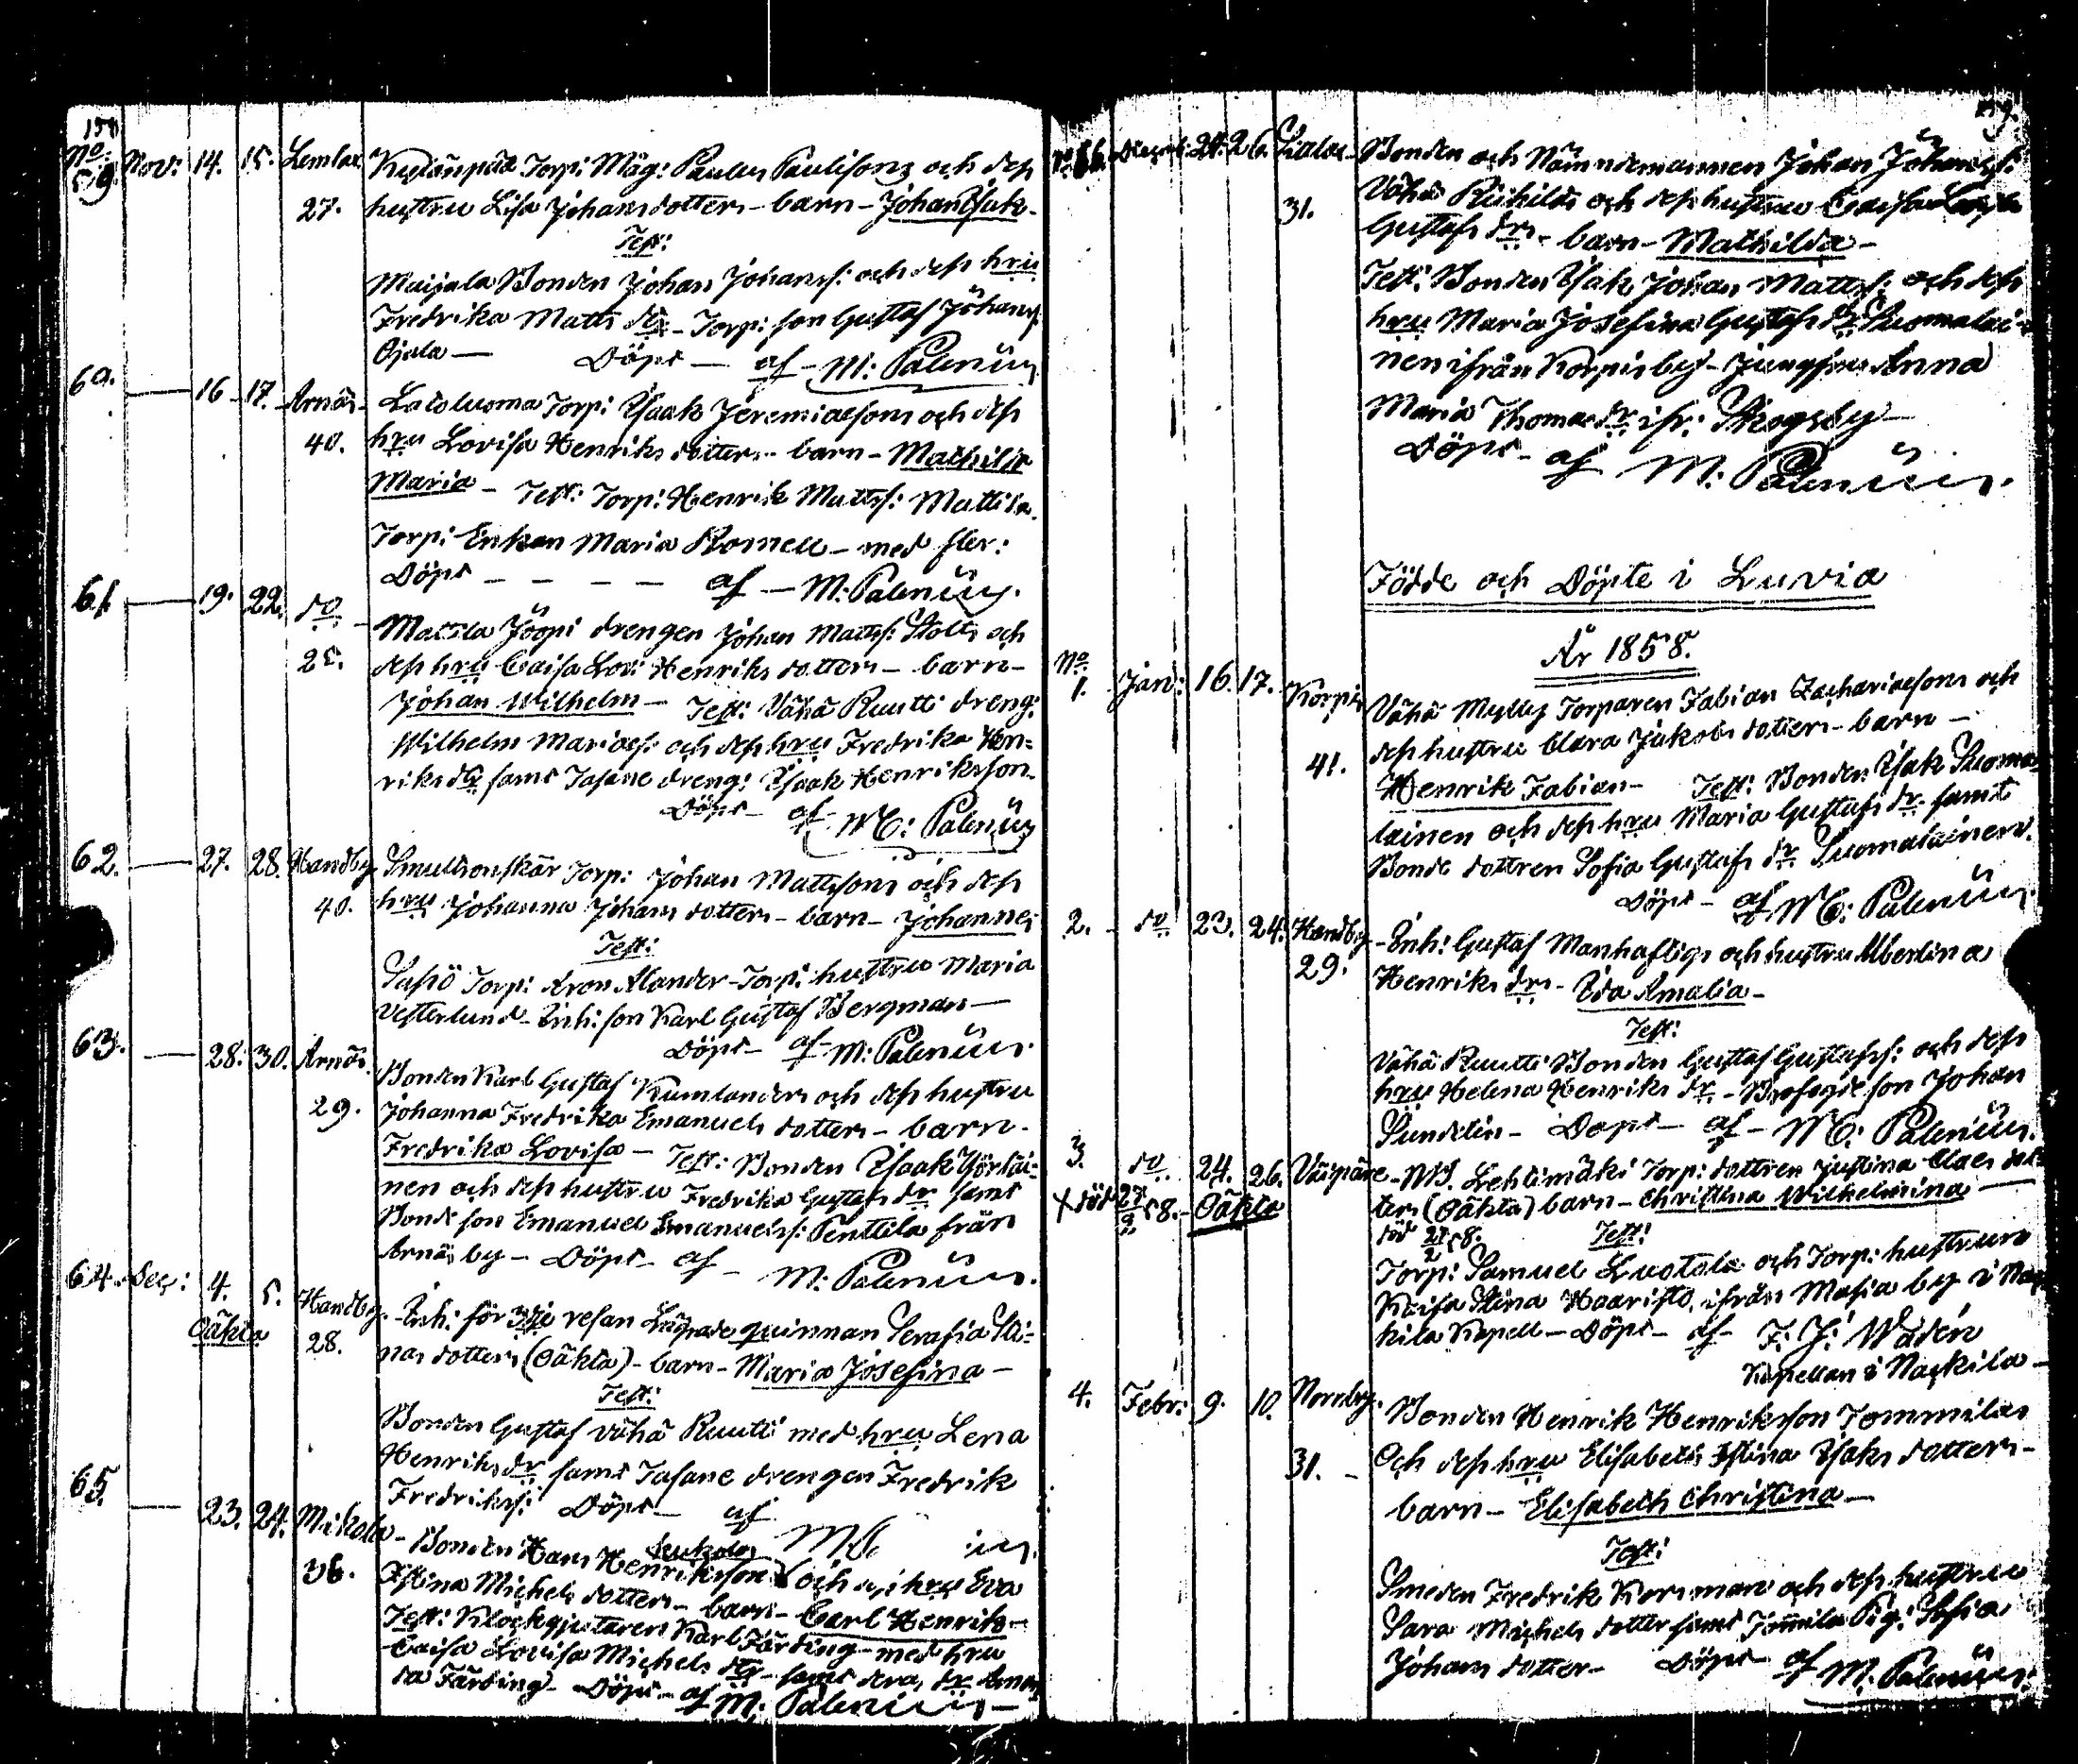 158
No 59. Nov: 14. 15. Lemlax. Torp: Måg: Paulus Paulisons och dess
27. hustru Lisa Johans dotters - barn - Johan Isak -
Test:
Maijala Bonden Johan Johanss: och dess hru
Fredrika Matts dr - Torp: son Gustaf Johanss.
Ojala — Döpt — af - M: Palenius
60. — 16 - 17. Arnäs - Torp: Isaak Jeremiaesons och dess
40. hru Lovisa Henriks dotters - barn - Mathilda
Maria - Test: Torp: Henrik Mattss: Mattila.
Torp: Enkan Maria - med fler:
Döpt - - - - af - M: Palenius.
61 — 19. 22. do - Mattila drengen Johan Mattss: Stolts och
25. dess hru Caisa Lov: Henriks dotters - barn -
Johan Wilhelm - Test: Vähä Ruutti dreng:
Wilhelm Mariaes: och dess hru Fredrika Hen=
riks dr samt Tasane dreng: Isaak Henriksson -
Döpt - af M: Palenius
62. — 27. 28. Handby. Smultronskär Torp: Johan Mattssons och dess
40. hru Johanna Johans dotters - barn - Johannes
Test:
Torp: Aron Alander - Torp: hustru Maria
Vesterlund - Inh: son Karl Gustaf Bergman —
Döpt - af M: Palenius.
63. — 28. 30. Arnäs. Bonden Karl Gustaf Kumlanders och dess hustru
29. Johanna Fredrika Emanuels dotters - barn -
Fredrika Lovisa - Test: Bonden Isaak
nen och dess hustru Fredrika Gustafs dr samt
Bonde son Emanuel Emanuelss: Penttila från
Arnäs by - Döpt - af - M: Palenius.
64. Dec: 4. 5. Handby. Inh: för 3dje resan Lägrade quinnan Serafia Sti=
Oäkta 28. nas dotters (Oäkta) - barn - Maria Josefina -
Test:
Bonden Gustaf Vähä Ruutti med hru Lena
Henriks dr samt Tasane drengen Fredrik
Fredrikss: Döpt - af
65. — 23. 24. Mikola - Bonden Hans Henriksson och dess hru Eva
36. Stina Michels dotters - barn - Carl Henrik -
Test: Klockgjutaren Karl Färding - med hru
Caisa Lovisa Michels dtr - samt dera, dr Aman
da Färding - Döpt - af M: Palenius -
No 66. Decemb. 24. 26. Bonden och Nämndemannen Johan Johanss:
31. Vähä och dess hustru Caisa
Gustafs drs - barn - Mathilda -
Test: Bonden Isak Johan Mattss: och dess
hru Maria Josefina Gustafs dr Suomalai-
nen ifrån Korpis by - Jungfru Anna
Maria Thomas dr ifr: Skogsby -
Döpt - af M: Palenius.
Födde och Döpte i Luvia
År 1858.
No 1. Jan: 16. 17. Korpis Vähä Mylly Torparen Fabian Zachariaesons och
41. dess hustru Clara Jakobs dotters - barn -
Henrik Fabian - Test: Bonden Isak Suoma-
lainen och dess hru Maria Gustafs dr - samt
Bonde dottren Sofia Gustafs dr Suomalainen.
Döpt - af M: Palenius
2. - do 23. 24. Handby - Inh: Gustaf Manhaftigs och hustru Albertina
29. Henriks drs - Ida Amalia -
Test:
Vähä Ruutti Bonden Gustaf Gustafss: och dess
hru Helena Henriks dr - son Johan
Sundelin - Döpt - af - M: Palenius.
3. do 24. 26. Väipäre - Lehtimäki Torp: dottren Justina Claes dot-
† död 27/2 58. - Oäkta ters (Oäkta) barn - Christina Wilhelmina -
död 27/2 58. Test:
Torp: Samuel Luotola och Torp: hustrun
Kaisa Stina Haaristo, ifrån Masia by i Nac
kila Kapell - Döpt - af - F: J: Wadén
Kapellan i Nackila -
4. Febr: 9. 10. Norrby. Bonden Henrik Henriksson Tommilas
31. - Och dess hru Elisabeth Stina Isaks dotters -
barn - Elisabeth Christina -
Test:
Smeden Fredrik Korsman och dess hustru
Sara Michels dotter samt Tommila Pig: Sofia
Johans dotter - Döpt af M: Palenius.